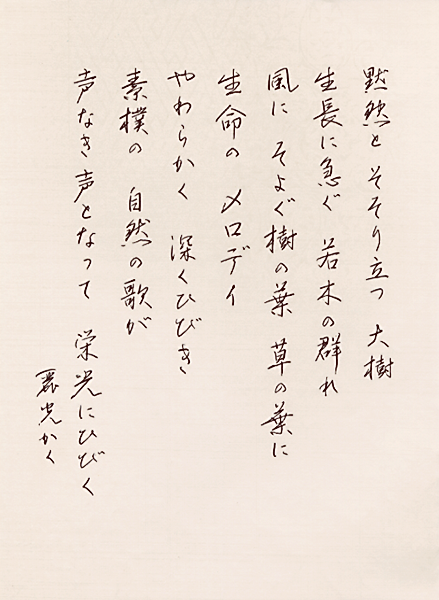 黙然と そそり立つ 大樹
生長に急ぐ 若木の群れ
風に そよぐ樹の葉 草の葉に
生命の メロデイ
やわらかく 深くひびき
素樸の 自然の歌が
声なき声となって 栄光にひびく
麗光かく